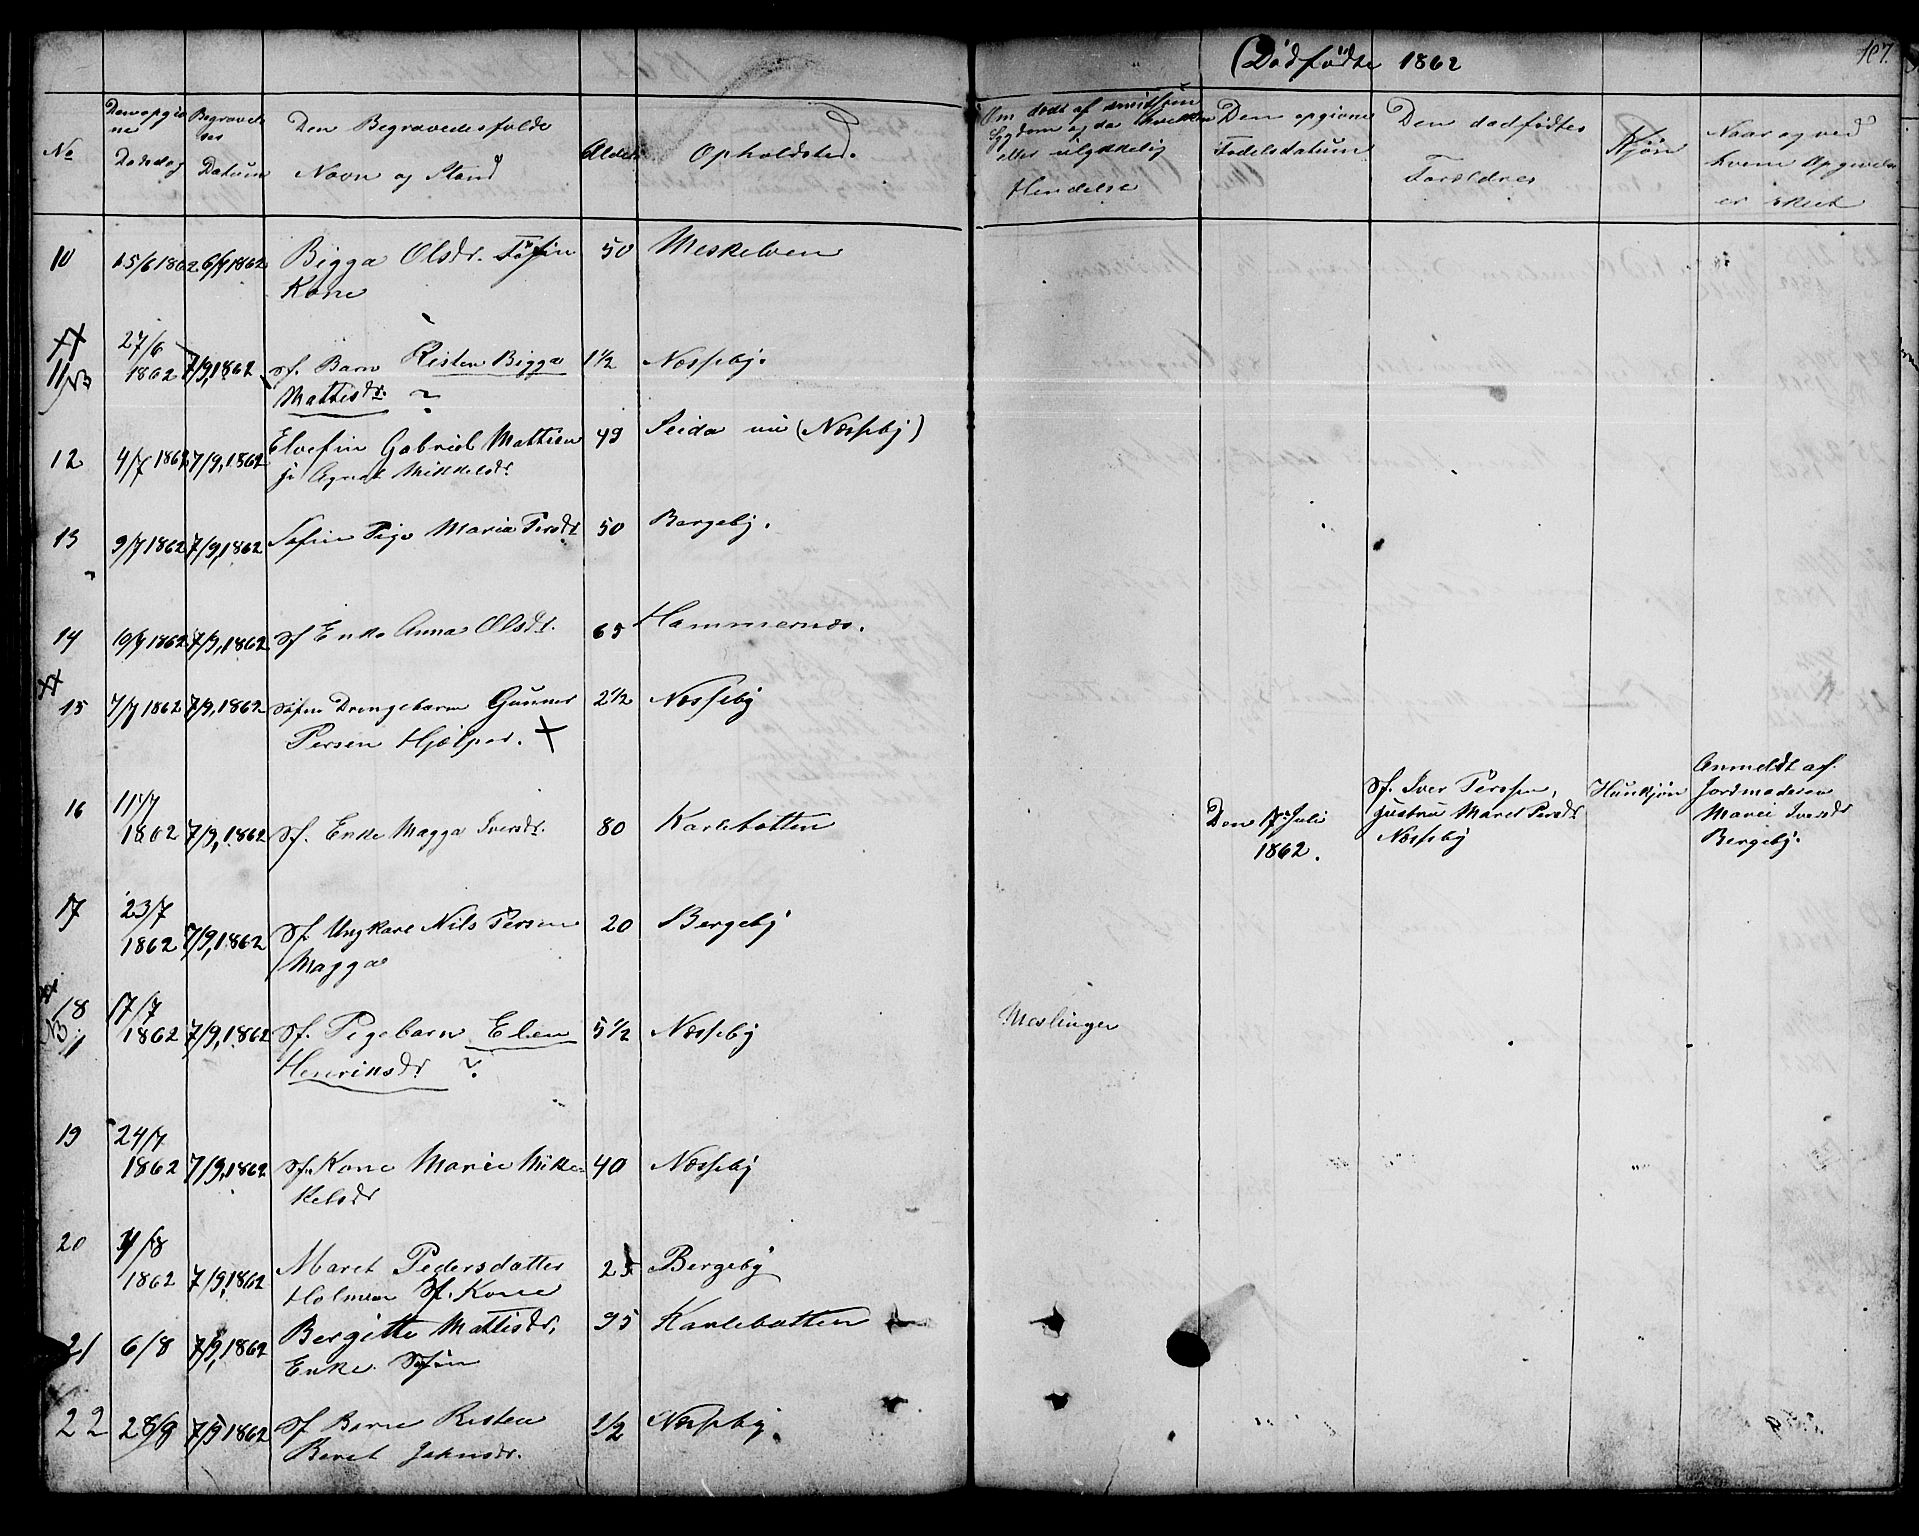 Dødfødte 1862
107.
No
Den opgivne Dødsdag
Begravelses Datum
Den Begravedes fulde Navn og Stand
Alder
Opholdsted.
Om død af smitsom Sygdom og da hvilken eller ulykkelig Hendelse
Den opgivne Fødelsdatum
Den dødfødtes Forældres
Kjøn
Naar og ved hvem Opgivelsen er skeet
10 15/6 1862 6/7 1862 Bigga Olsdr. Søfin 50 Meskelven
Kone
27/6
11 NB 1862 7/9, 1862 Sf. Barn Risten Bigga 1 1/2 Næsseby.
Mattisdr. ?
Elvefin Gabriel Mattisen 49 Seida nu (Næsseby)
12 4/7 1862 7/9, 1862
g. Agnet Mikkelsdr.
13 9/7 1862 7/9, 1862 Søfin Pige Maria Persdr 50 Bergeby.
14 10/7 1862 7/9, 1862 Sf Enke Anna Olsdr. 65 Hammernæs.
xx
15 7/7 1862 7/9, 1862 Søfin Drengebarn Gunner 2 1/2 Næsseby
Persen Hjelper. X
16 11/7
1862 7/9, 1862 Sf. Enke Magga Iversdr. 80 Karlebotten
Den 17 Juli
1862.
Sf. Iver Persen,
Hustru Maret Persdr
Næsseby
Hunkjøn
Anmeldt af.
Jordmoderen
Marie Iversdr
Bergeby.
17 23/7
1862 7/9, 1862 Sf. Ungkarl Nils Persen 20 Bergeby
Magga
xx
18 17/7
NB 1862 7/9, 1862 Sf. Pigebarn Elen 5 1/2 Næsseby Meslinger
Henriksdr ?
19 24/7
1862 7/9, 1862 Sf. Kone Marie Mik- 40 Næsseby
kelsdr
20 4/8
1862 7/9, 1862 Maret Pedersdatter 25 Bergeby
Holmen Sf. Kone
21 6/8 7/9, 1862 Bergitte Mattisdr, 95 Karlebotten
Enke Søfin
22 28/8 7/9 1862 Sf Barn Risten 1/2 Næsseby.
Beret Johnsdr.